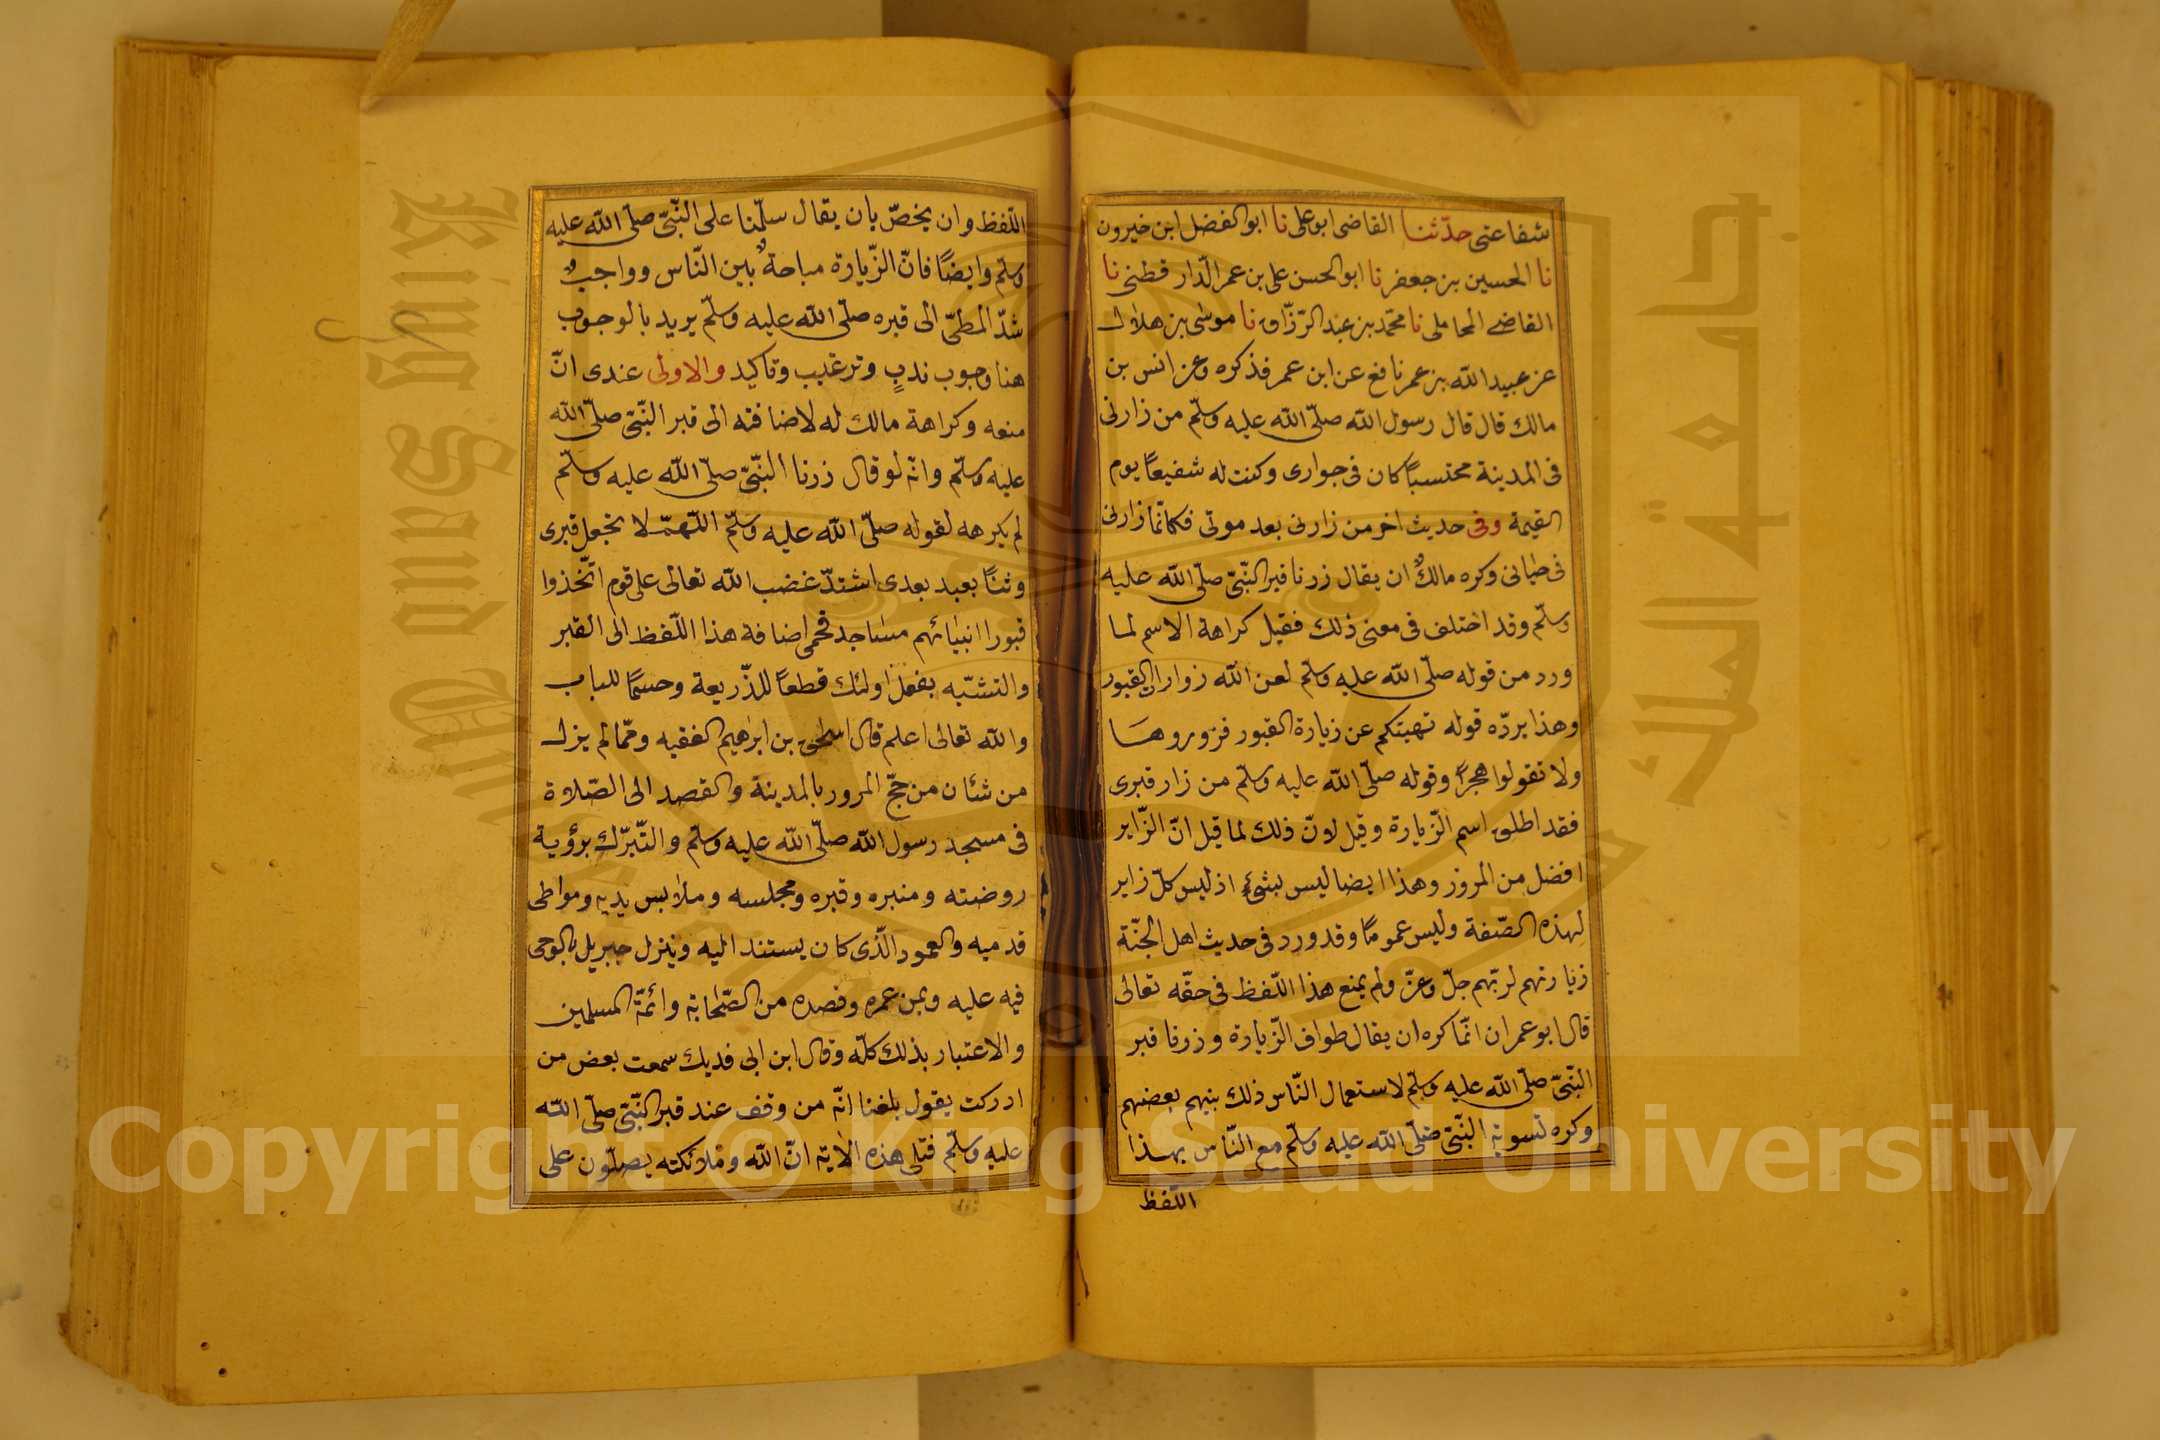 شفاعتى حدّثنا القاضى ابوعلى نا ابوالفضل ابن خيرون
نا الحسين بن جعفر نا ابوالحسن على بن عمر الدّار قطنى نا
القاضى المحاملى نا محمّد بن عبد الرّزّاق نا موسٰى بن هلال
عن عبيد الله بن عمر نافع عن ابن عمر فذكره وعن انس بن
مالك قال قال رسول الله صلّى الله عليه وسلّم من زارنى
فى المدينة محتسبًا كان فى جوارى وكنت له شفيعًا يوم
القيمة وفى حديث اخر من زارنى بعد موتى فكانّما زارنى
فى حياتى وكره مالكٌ ان يقال زرنا قبر النّبىّ صلّى الله عليه
وسلّم وقد اختلف فى معنى ذلك فقيل كراهة الاسم لما
ورد من قوله صلّى الله عليه وسلّم لعن الله زوارات القبور
وهذا يردّه قوله نهيتكم عن زيارة القبور فزوروها
ولا تقولوا هجرًا وقوله صلّى الله عليه وسلّم من زار قبرى
فقد اطلق اسم الزّيارة وقيل لانّ ذلك لما قيل انّ الزّاير
افضل من المزور وهذا ايضا ليس بشىء اذ ليس كلّ زاير
لهذه الصّفة وليس عمومًا وقد ورد فى حديث اهل الجنّة
زيارتهم لربّهم جلّ وعزّ ولم يمنع هذا اللّفظ فى حقّه تعالى
قال ابو عمران انّما كره ان يقال طواف الزّيارة وزرنا قبر
النّبىّ صلّى الله عليه وسلّم لاستعمال النّاس ذلك بينهم بعضهم
وكره تسوية النّبىّ صلّى الله عليه وسلّم مع النّاس بهذا
اللّفظ
اللّفظ وان يخصّ بان يقال سلّمنا على النّبىّ صلّى الله عليه
وسلّم وايضًا فانّ الزّيارة مباحةٌ بين النّاس وواجبٌ
شدّ المطىّ الى قبره صلّى الله عليه وسلّم يريد بالوجوب
هنا وجوب ندبٍ وترغيب وتاكيد والاولى عندى انّ
منعه وكراهة مالك له لاضافته الى قبر النّبىّ صلّى الله
عليه وسلّم وانّه لو قال زرنا النّبىّ صلّى الله عليه وسلّم
لم يكرهه لقوله صلّى الله عليه وسلّم اللّهمّ لا تجعل قبرى
وثنًا يعبد بعدى اشتدّ غضب الله تعالى على قوم اتّخذوا
قبورا انبيائهم مساجد فحمى اضافة هذا اللّفظ الى القبر
والتشبّه بفعل اولئك قطعًا للذّريعة وحسمًا للباب
والله تعالى اعلم قال اسحٰق بن ابرٰهيم الفقيه وممّا لم يزل
من شئان من حجّ المرور بالمدينة والقصد الى الصّلاة
فى مسجد رسول الله صلّى الله عليه وسلّم والتّبرّك برؤية
روضته ومنبره وقبره ومجلسه وملابس يديه ومواطى
قدميه والعمود الّذى كان يستند اليه وينزل جبريل بالوحى
فيه عليه وبمن عمره وقصده من الصّحابة وائمّة المسلمين
والاعتبار بذلك كلّه وقال ابن ابى فديك سمعت بعض من
ادركت يقول بلغنا انّه من وقف عند قبر النّبىّ صلّى الله
عليه وسلّم فتلى هذه الاية انّ الله وملائكته يصلّون على
King Saud University
جامعة الملك
Copyright © King Saud University